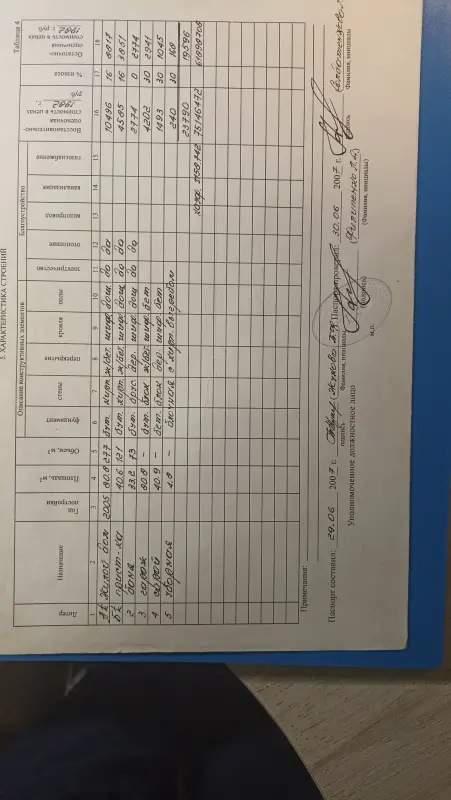 Таблица 4
5. ХАРАКТЕРИСТИКА СТРОЕНИЙ
Литер Назначение Год постройки Площадь, м² Объем, м³ Описание конструктивных элементов Благоустройство Восстановительно-оценочная стоимость в ценах 1982 г. руб. % износа Остаточно-оценочная стоимость в ценах 1982 г. руб.
фундамент стены перекрытия кровля полы электричество отопление водопровод канализация газоснабжение
1 2 3 4 5 6 7 8 9 10 11 12 13 14 15 16 17 18
жилой дом 2005 80.8 277 бут. кирп. ж/бет. шиф. дощ. да да 10496 16 8817
прист-ка 40.6 121 бут. кирп. ж/бет. шиф. дощ. да да 4585 16 3851
2 баня 33.2 73 бут. брус дер. шиф. дощ. да да 2774 0 2774
3 гараж 80.8 – бут. блок ж/бет. шиф. бет. 4202 30 2941
4 сарай 40.9 – бет. блок дер. шиф. бет. 1493 30 1045
5 уборная 4.8 – блочная с кирп. выгребом 240 30 168
23790 19596
коэф. 3158,742 75146472 61898708
Примечания:
Паспорт составил: 29.06 2007 г. Паспорт проверил: 30.06 2007 г.
подпись Фамилия, инициалы подпись Фамилия, инициалы
Уполномоченное должностное лицо
(подпись) (Фамилия, инициалы)
М.П.